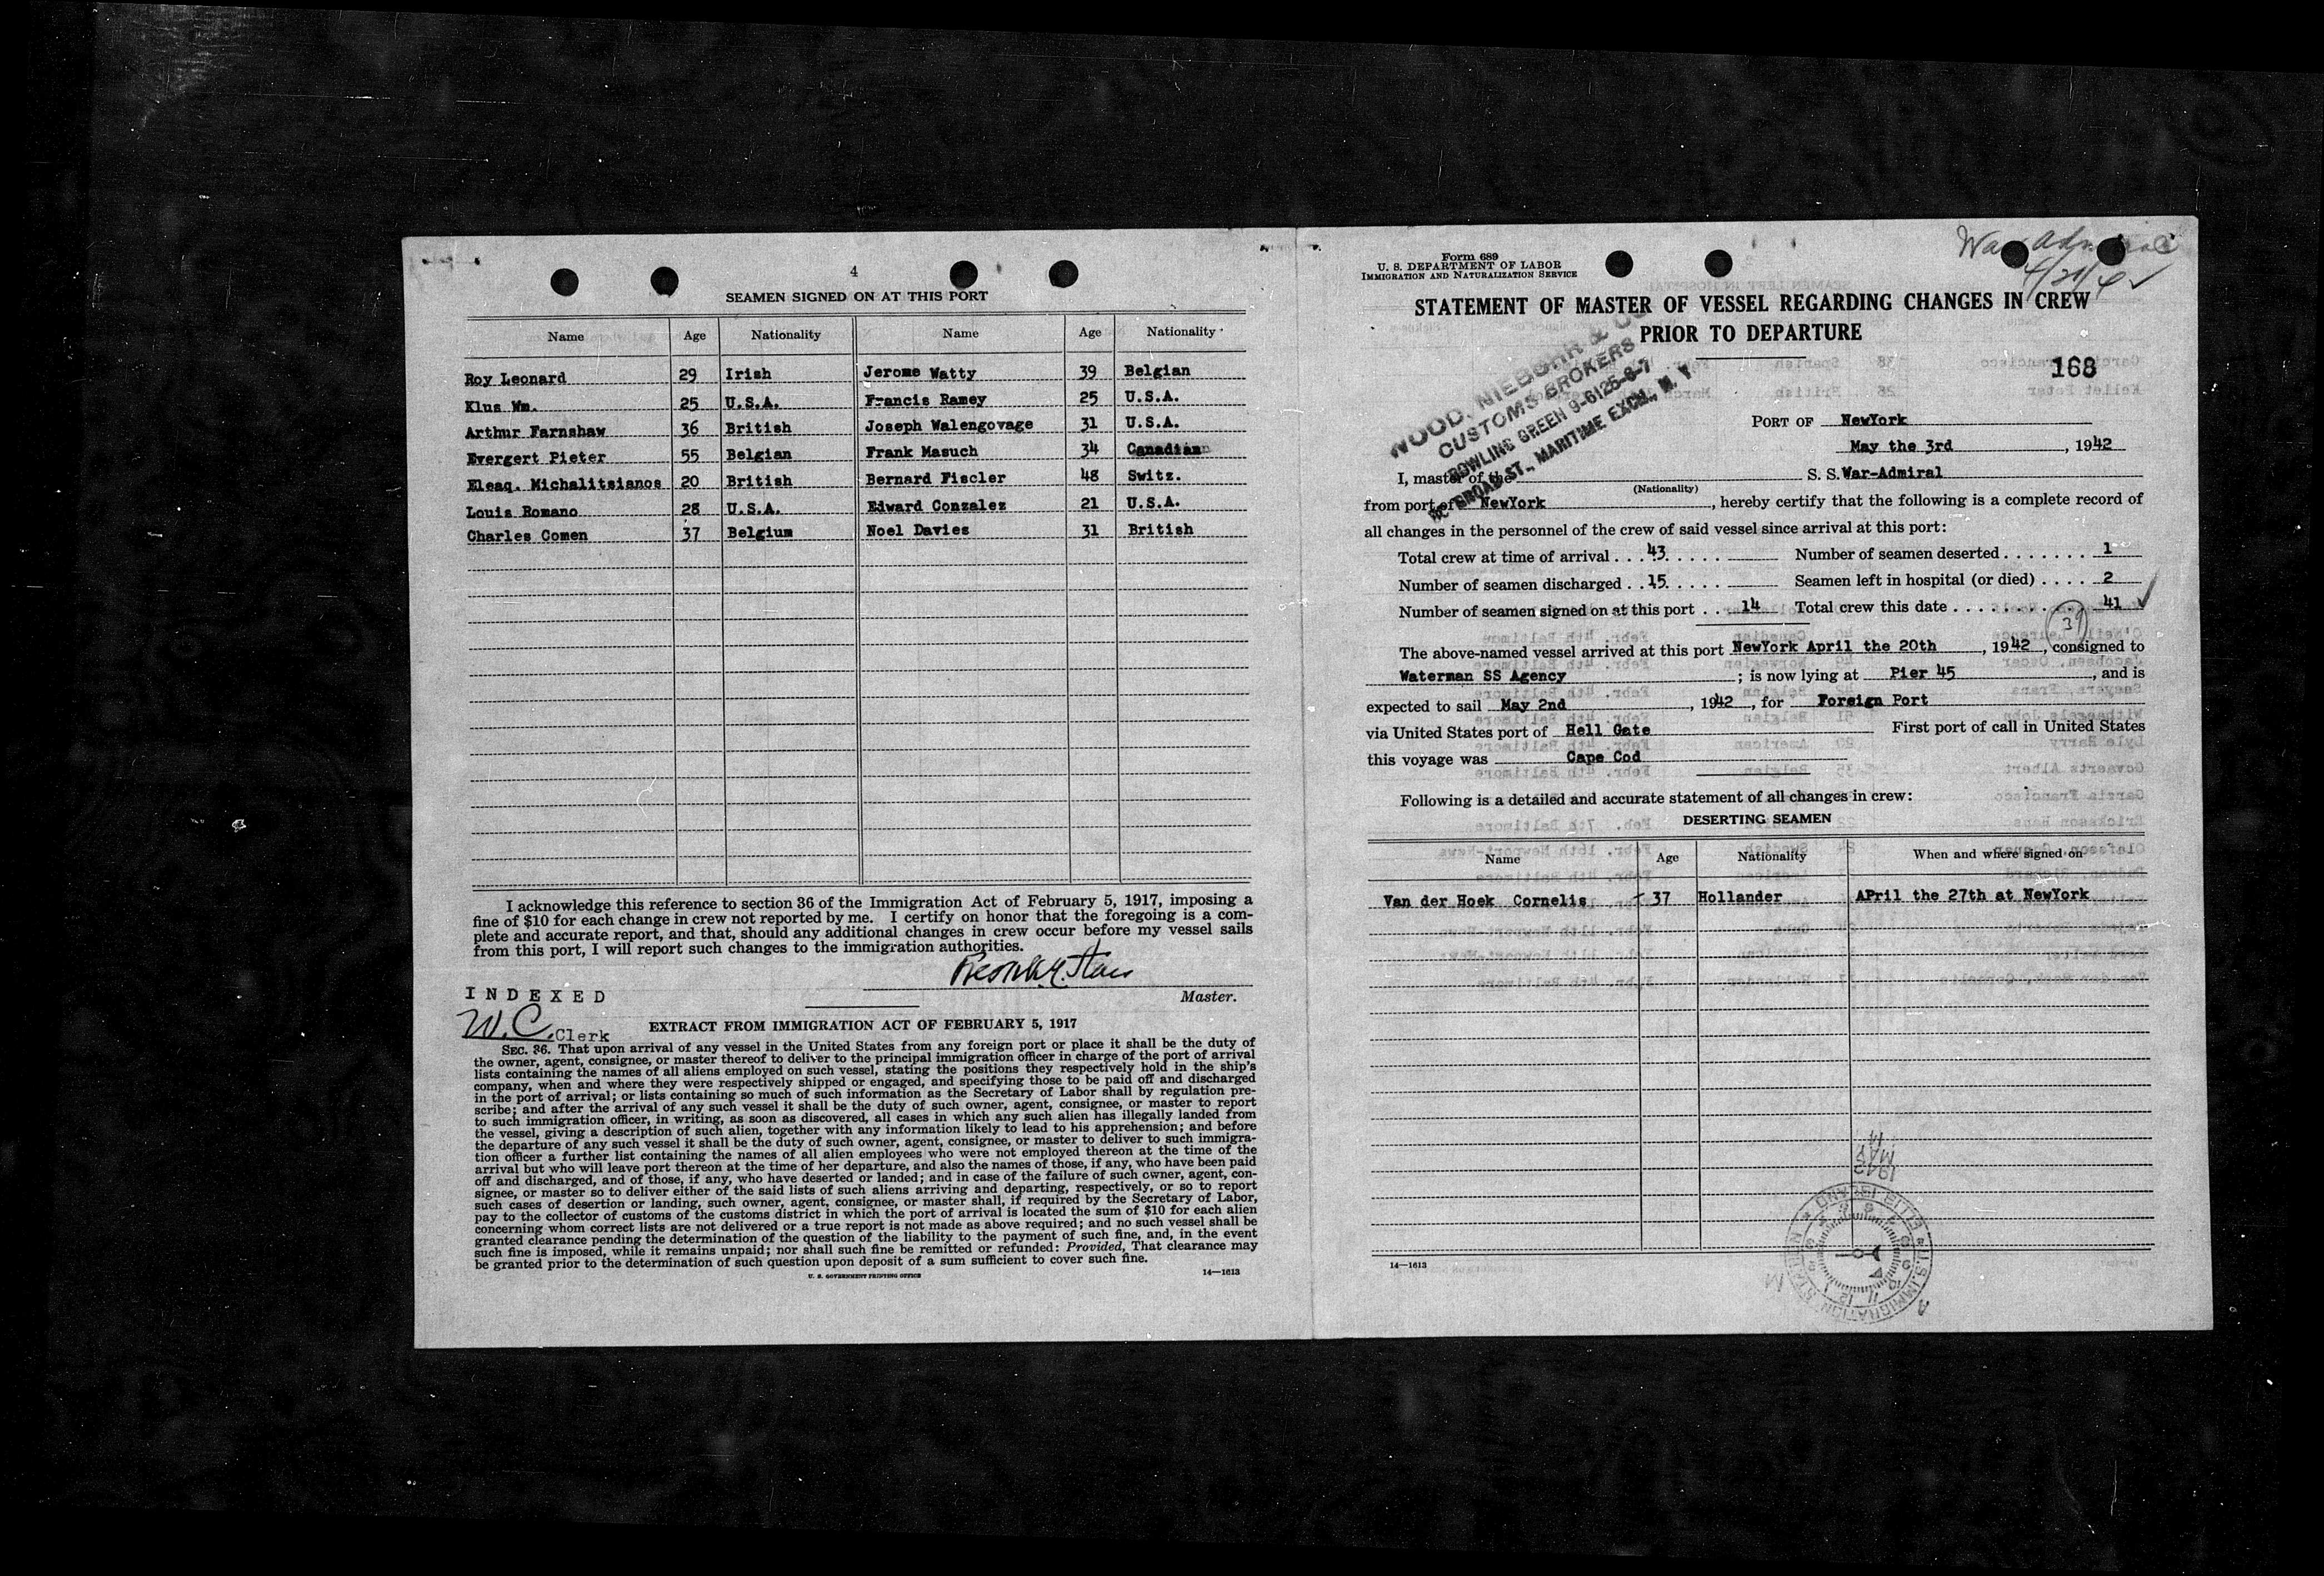 4
SEAMEN SIGNED ON AT THIS PORT
Name Age Nationality Name Age Nationality
Roy Leonard 29 Irish Jerome Watty 39 Belgian
Klus Wm. 25 U.S.A. Francis Ramey 25 U.S.A.
Arthur Farnshaw 36 British Joseph Walengovage 31 U.S.A.
Evergert Pieter 55 Belgian Frank Masuch 34 Canadian
Eleaq. Michalitsianos 20 British Bernard Fiscler 48 Switz.
Louis Romano 28 U.S.A. Edward Conzalez 21 U.S.A.
Charles Comen 37 Belgium Noel Davies 31 British
I acknowledge this reference to section 36 of the Immigration Act of February 5, 1917, imposing a
fine of $10 for each change in crew not reported by me. I certify on honor that the foregoing is a com-
plete and accurate report, and that, should any additional changes in crew occur before my vessel sails
from this port, I will report such changes to the immigration authorities.
Master.
INDEXED
W.C. Clerk
EXTRACT FROM IMMIGRATION ACT OF FEBRUARY 5, 1917
SEC. 36. That upon arrival of any vessel in the United States from any foreign port or place it shall be the duty of
the owner, agent, consignee, or master thereof to deliver to the principal immigration officer in charge of the port of arrival
lists containing the names of all aliens employed on such vessel, stating the positions they respectively hold in the ship's
company, when and where they were respectively shipped or engaged, and specifying those to be paid off and discharged
in the port of arrival; or lists containing so much of such information as the Secretary of Labor shall by regulation pre-
scribe; and after the arrival of any such vessel it shall be the duty of such owner, agent, consignee, or master to report
to such immigration officer, in writing, as soon as discovered, all cases in which any such alien has illegally landed from
the vessel, giving a description of such alien, together with any information likely to lead to his apprehension; and before
the departure of any such vessel it shall be the duty of such owner, agent, consignee, or master to deliver to such immigra-
tion officer a further list containing the names of all alien employees who were not employed thereon at the time of the
arrival but who will leave port thereon at the time of her departure, and also the names of those, if any, who have been paid
off and discharged, and of those, if any, who have deserted or landed; and in case of the failure of such owner, agent, con-
signee, or master so to deliver either of the said lists of such aliens arriving and departing, respectively, or so to report
such cases of desertion or landing, such owner, agent, consignee, or master shall, if required by the Secretary of Labor,
pay to the collector of customs of the customs district in which the port of arrival is located the sum of $10 for each alien
concerning whom correct lists are not delivered or a true report is not made as above required; and no such vessel shall be
granted clearance pending the determination of the question of the liability to the payment of such fine, and, in the event
such fine is imposed, while it remains unpaid; nor shall such fine be remitted or refunded: Provided, That clearance may
be granted prior to the determination of such question upon deposit of a sum sufficient to cover such fine.
U. S. GOVERNMENT PRINTING OFFICE 14—1613
Form 689
U. S. DEPARTMENT OF LABOR
IMMIGRATION AND NATURALIZATION SERVICE
STATEMENT OF MASTER OF VESSEL REGARDING CHANGES IN CREW
PRIOR TO DEPARTURE
168
WOOD, NIEBUHR & CO.
CUSTOMS BROKERS
BOWLING GREEN 9-6125-6-7
BROAD ST., MARITIME EXCH., N. Y.
PORT OF NewYork
May the 3rd, 1942
I, master of the S. S. War-Admiral
(Nationality)
from port of NewYork, hereby certify that the following is a complete record of
all changes in the personnel of the crew of said vessel since arrival at this port:
Total crew at time of arrival . . . 43 . . . . . Number of seamen deserted . . . . . . . 1
Number of seamen discharged . . 15 . . . . . Seamen left in hospital (or died) . . . . 2
Number of seamen signed on at this port . . 14 Total crew this date . . . . . . . . . 41
39
The above-named vessel arrived at this port NewYork April the 20th, 1942, consigned to
Waterman SS Agency; is now lying at Pier 45, and is
expected to sail May 2nd, 1942, for Foreign Port
via United States port of Hell Gate First port of call in United States
this voyage was Cape Cod
Following is a detailed and accurate statement of all changes in crew:
DESERTING SEAMEN
Name Age Nationality When and where signed on
Van der Hoek Cornelis 37 Hollander APril the 27th at NewYork
1942
MAY
U.S. IMMIGRATION STATION ELLIS ISLAND
14—1613